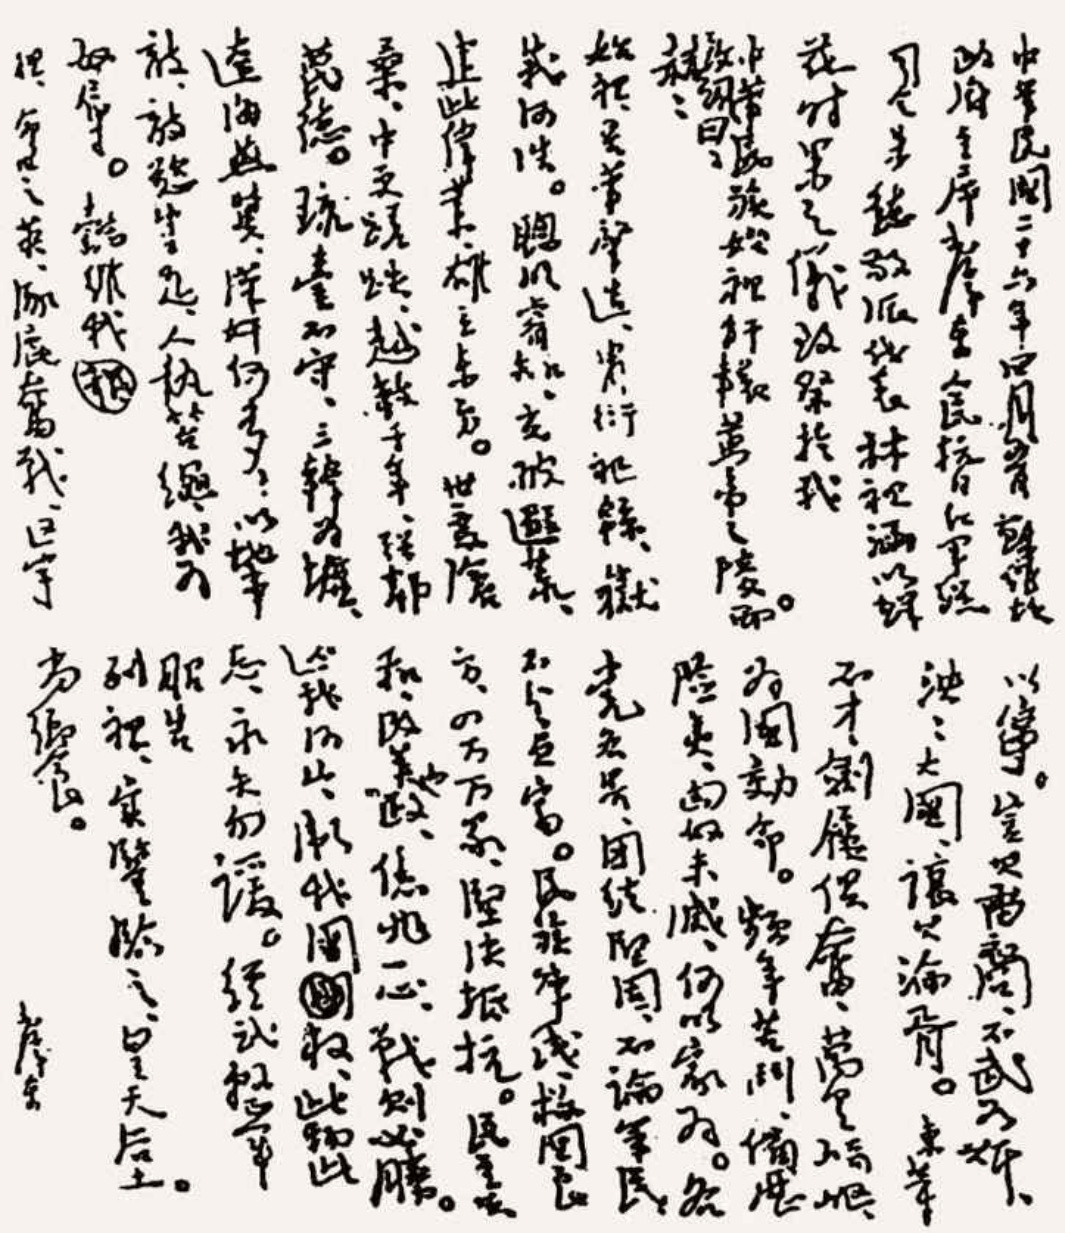 中華民國二十六年四月五日蘇維埃
政府主席毛澤東人民抗日紅軍總
司令朱德敬派代表林祖涵以鮮
花時果之儀致祭於我
中華民族始祖軒轅黃帝之陵而
致詞曰、
赫赫
始祖、吾華肇造、冑衍祀綿、嶽
峨河浩。聰明睿知、光被遐荒、
建此偉業、雄立東方。世變滄
桑、中更蹉跌、越數千年、強鄰
蔑德。琉臺不守、三韓為墟、
遼海燕冀、漢奸何多、以地事
敵、敵慾豈足、人執笞繩、我為
奴辱。懿維我祖
祖、命世之英、涿鹿奮戰、區宇
以寧。豈其苗裔、不武如斯、
泱泱大國、讓其淪胥。東等
不才、劍屨俱奮、萬里崎嶇、
為國效命。頻年苦鬥、備歷
險夷、匈奴未滅、何以家為。各
黨各界、團結堅固、不論軍民、
不分貧富。民族陣綫、救國良
方、四萬萬眾、堅決抵抗。民主共
和、改革內政、億兆一心、戰則必勝。
還我河山、衛我國權、此物此
志、永矢勿諼。經武整軍
昭告
列祖、實鑒臨之、皇天后土。
尚饗。
毛澤東